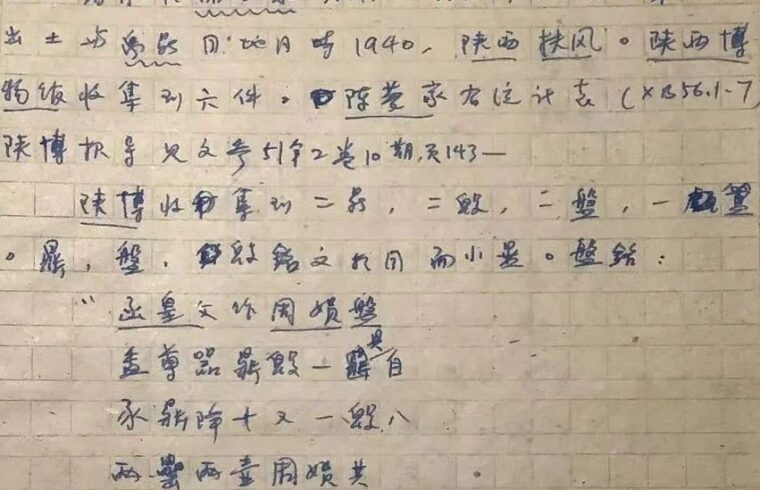 出土与鼎同地同时1940，陕西扶风。陕西博
物馆收集到六件。陈梦家有统计表（XB56.1-7
陕博报导见文参51年2卷10期，页143—
陕博收集到二鼎，二毁，二盤，一
。鼎，盤，毁铭文相同而小異。盤銘：
“函皇父作周娟盤
盉尊器鼎毁一具自
豕鼎降十又一毁八
两罍两壶周娟其